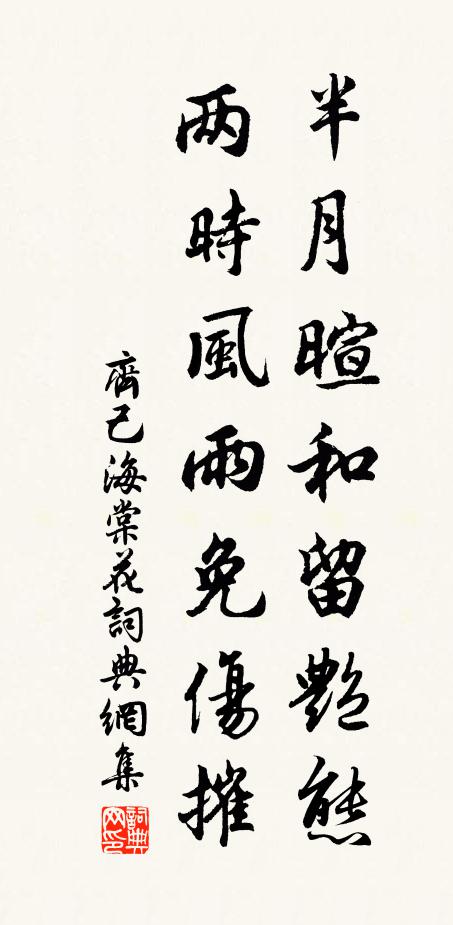 半月暄和留艷態
两時風雨免傷摧
齊己海棠花詞典網集
詞典网印